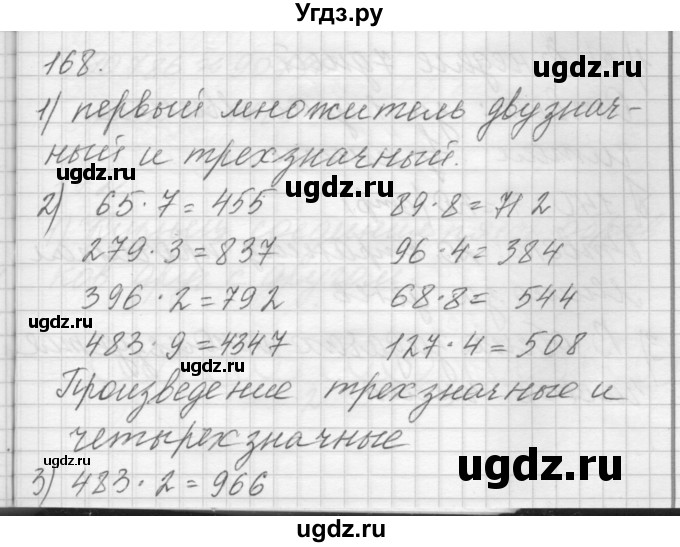 Угдз.ру
168.
1) первый множитель двузнач-
ный и трехзначный.
ugdz.ru ugdz.ru
2) 65·7=455 89·8=712
279·3=837 96·4=384
396·2=792 68·8= 544
ugdz.ru
483·9=4347 127·4=508
ugdz.ru
Произведение трехзначные и
четырехзначные
ugdz.ru ugdz.ru
3) 483·2=966
ugdz.ru